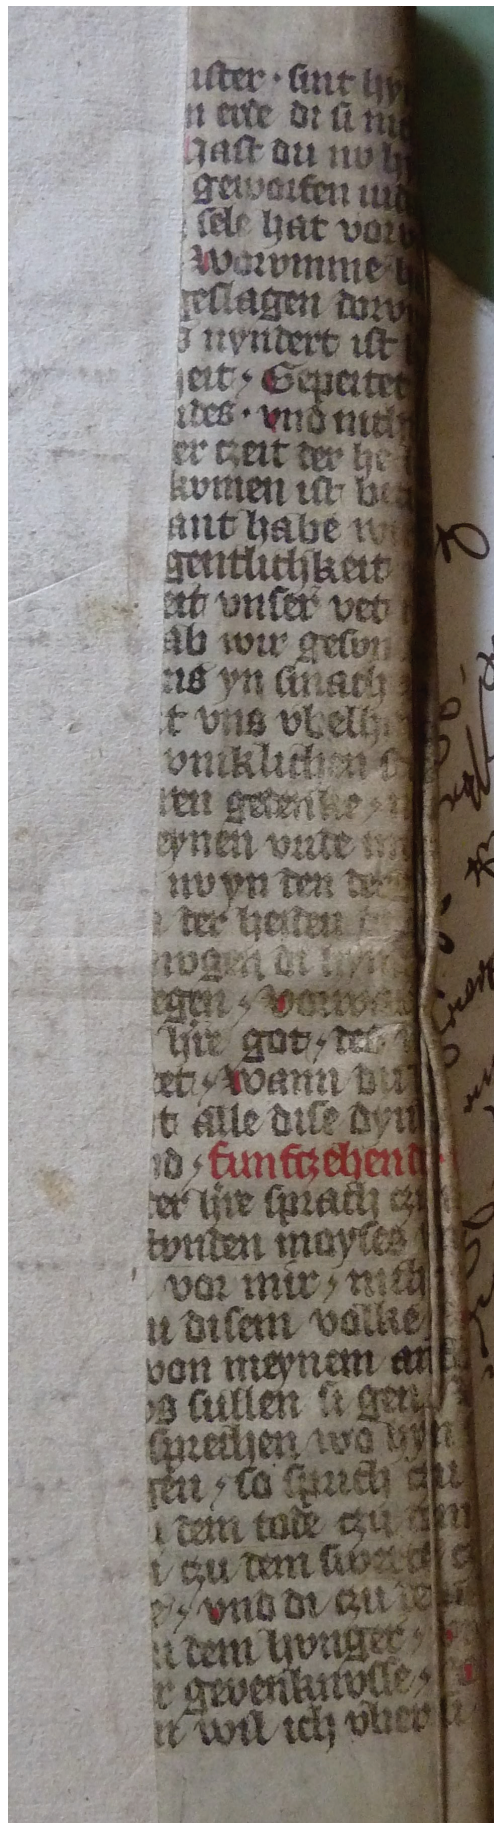 ister · sint hy
n erde di si nic
hast du nv h
geworfen wid
sele hat vor
Worvmme h
geslagen dorv
s nyndert ist
heit · Gepeitet
ides · vnd nich
er czeit der he
komen ist be
ant habe w
gentlichkeit
eit vnser vet
ab wir gesvn
ns yn smach
t vns vbelh
vniklichen
ren gedenke
eynen vnde
nv yn den
der heiden
mvgen di
egen · vorwar
hre got · des
tet · Wann du
t alle dise dyn
nd · funfczehend
ter hre sprach czu
tvnden moyses
vor mir · nich
u disem volke
von meynem an
os sullen si gen
sprechen wo hyn
gen · so sprich czu
dem tode czu dem
czu dem swerte c
e · vnd di czu de
u dem hvnger ·
r gevenknvsse ·
n wil ich vber